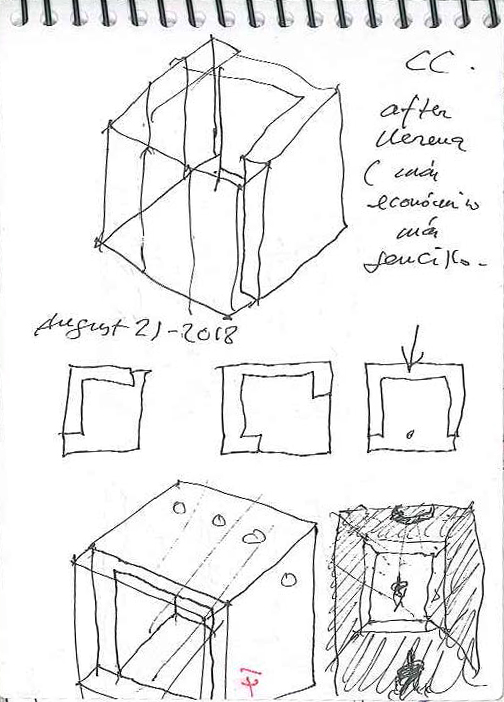 CC.
after
Llerena
(más
económico
más
sencillo.
August 21-2018
41